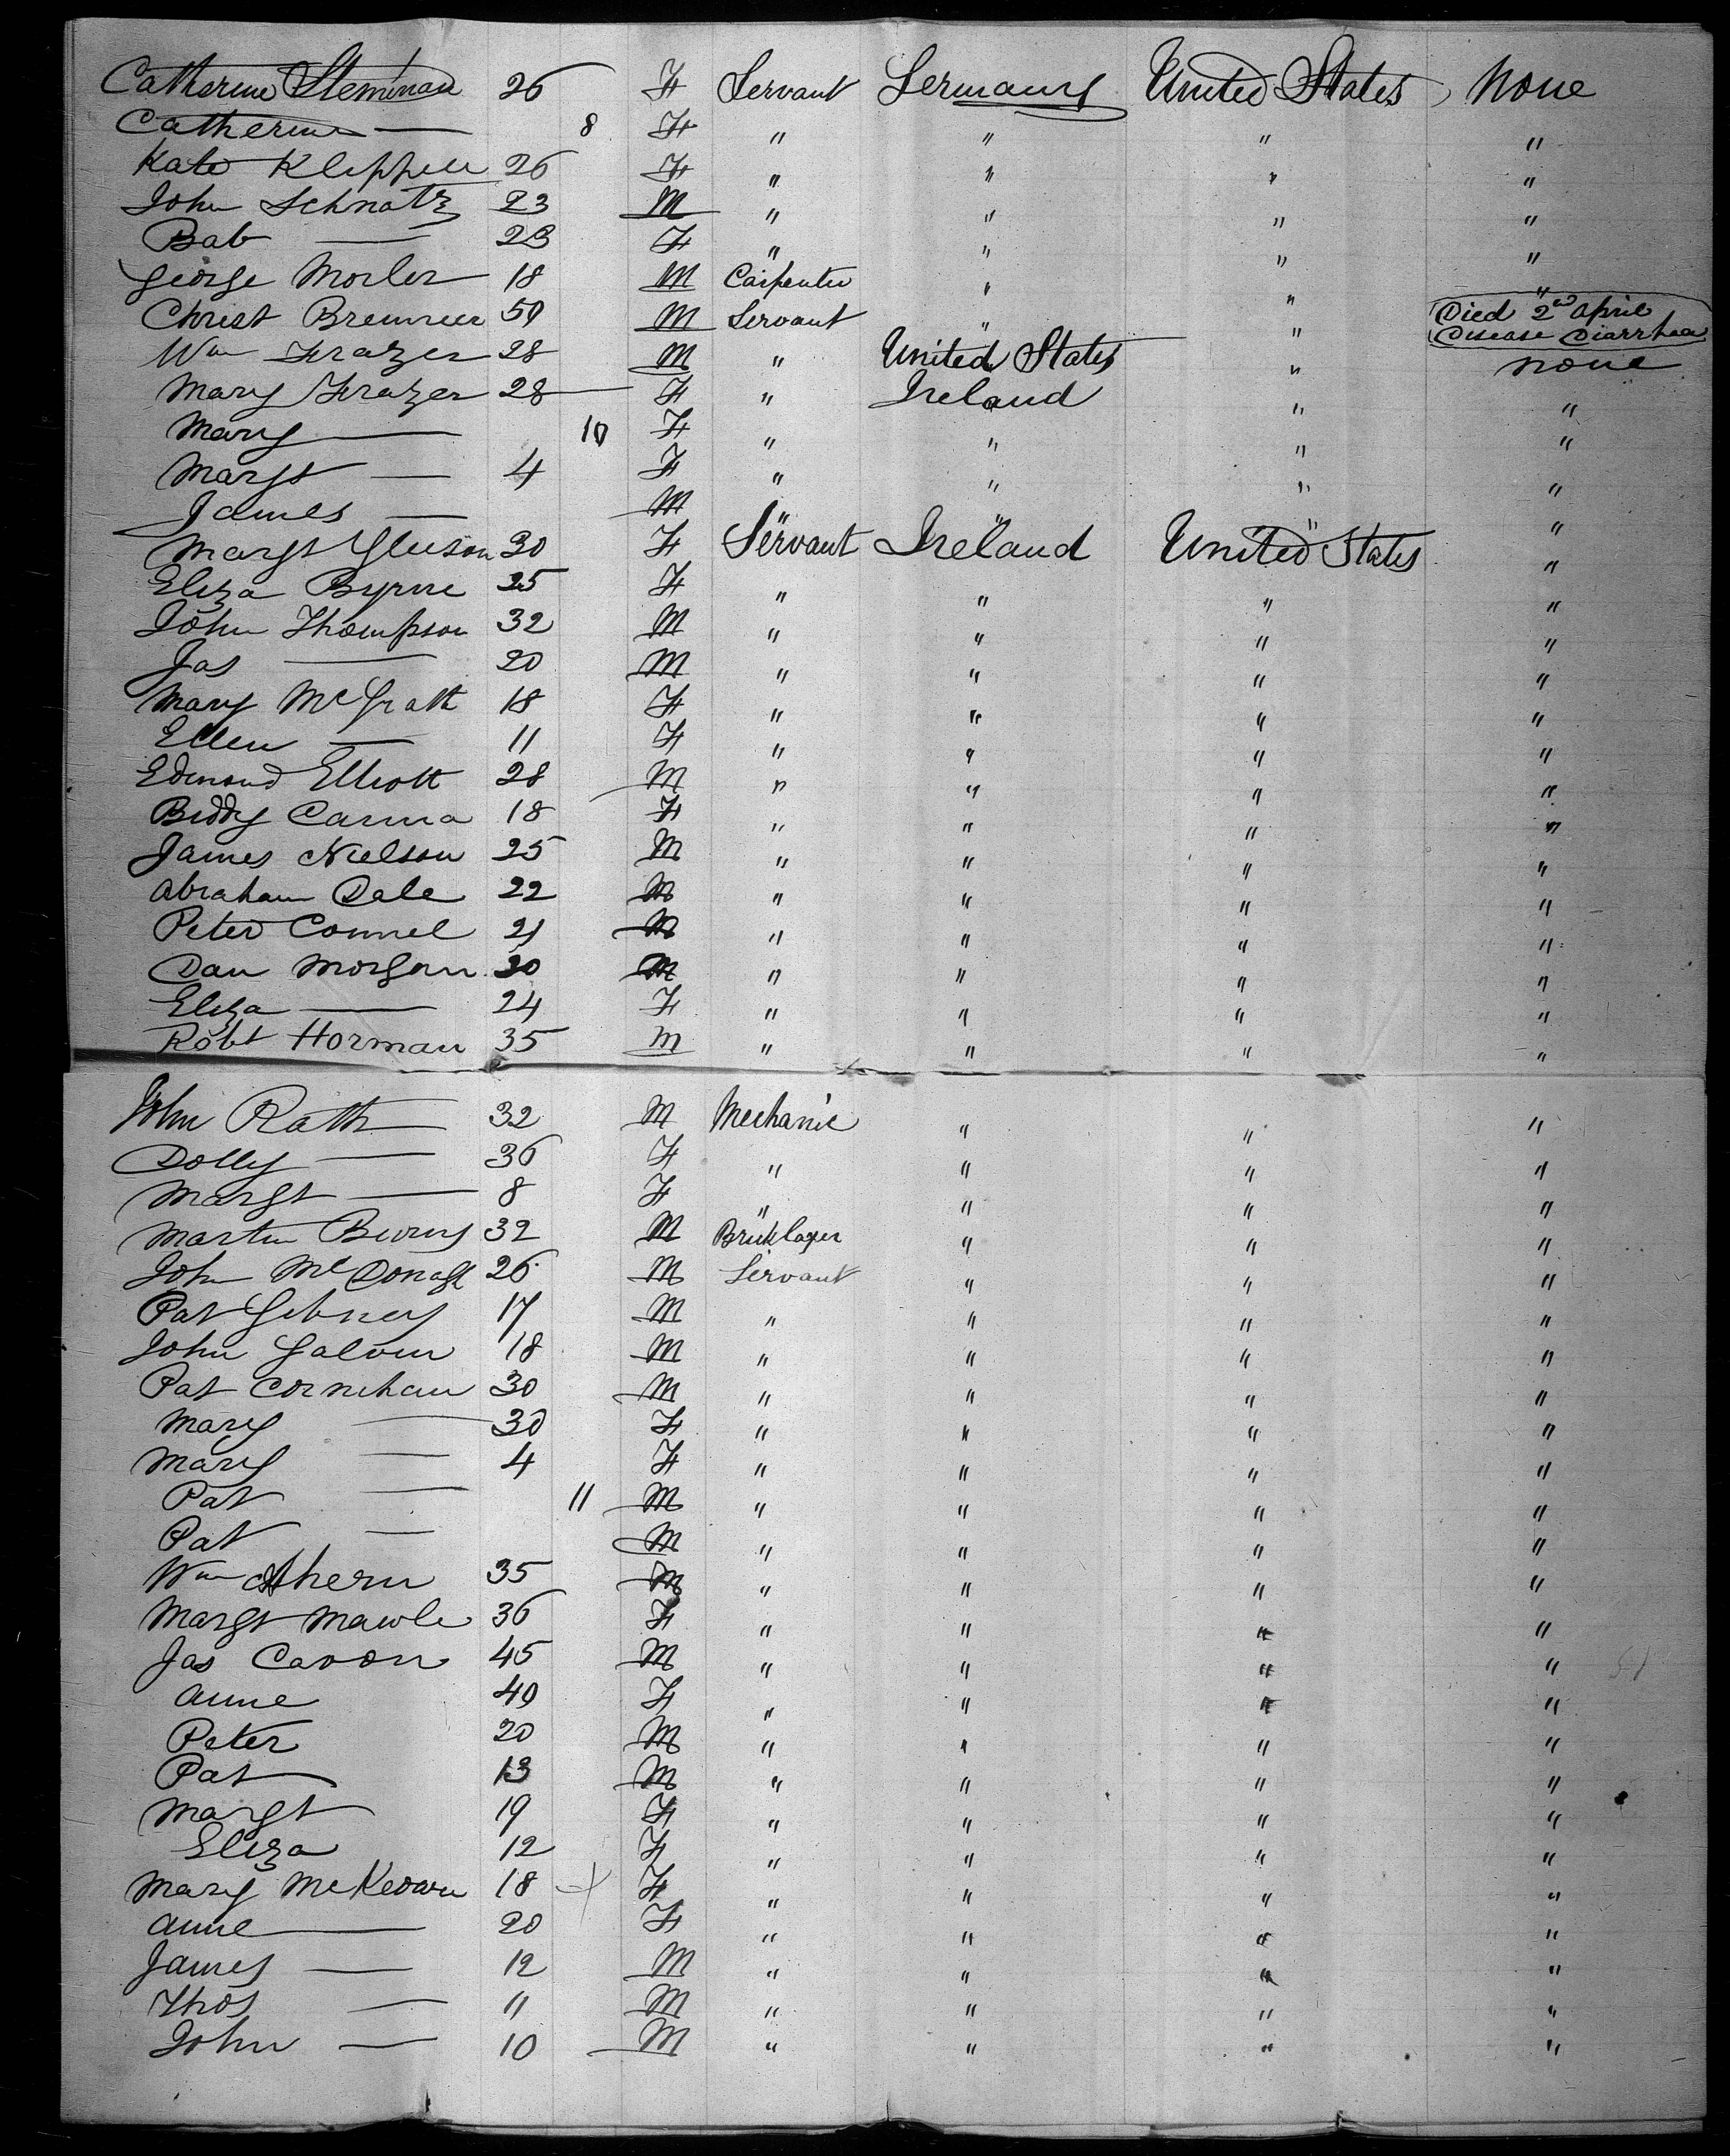 Catherine Stemman 26 F Servant Germany United States None
Catherine — 8 F " " " "
Kate Klippell 26 F " " " "
John Schnatz 23 M " " " "
Bab — 23 F " " " "
George Morler 18 M Carpenter " " "
Christ Bremner 50 M Servant " " Died 2nd April Disease Diarrhea
Wm Frazer 28 M " United States " none
Mary Frazer 28 F " Ireland " "
Mary — 10 F " " " "
Margt — 4 F " " " "
James — M " " " "
Margt Gleeson 30 F Servant Ireland United States "
Eliza Byrne 25 F " " " "
John Thompson 32 M " " " "
Jas — 20 M " " " "
Mary McGrath 18 F " " " "
Ellen — 11 F " " " "
Edmond Elliott 28 M " " " "
Biddy Canna 18 F " " " "
James Nielson 25 M " " " "
Abraham Dale 22 M " " " "
Peter Connel 21 M " " " "
Dan Morgan 30 M " " " "
Eliza — 24 F " " " "
Robt Horman 35 M " " " "
John Rath 32 M Mechanic " " "
Dolly — 36 F " " " "
Margt — 8 F " " " "
Martin Burns 32 M Bricklayer " " "
John McDonagh 26 M Servant " " "
Pat Gibney 17 M " " " "
John Galvin 18 M " " " "
Pat Cornehan 30 M " " " "
Mary — 30 F " " " "
Mary — 4 F " " " "
Pat — 11 M " " " "
Pat — M " " " "
Wm Ahern 35 M " " " "
Margt Mawle 36 F " " " "
Jas Cavon 45 M " " " "
Anne 40 F " " " "
Peter 20 M " " " "
Pat 13 M " " " "
Margt 19 F " " " "
Eliza 12 F " " " "
Mary McKeown 18 F " " " "
Anne — 20 F " " " "
James — 12 M " " " "
Thos — 11 M " " " "
John — 10 M " " " "